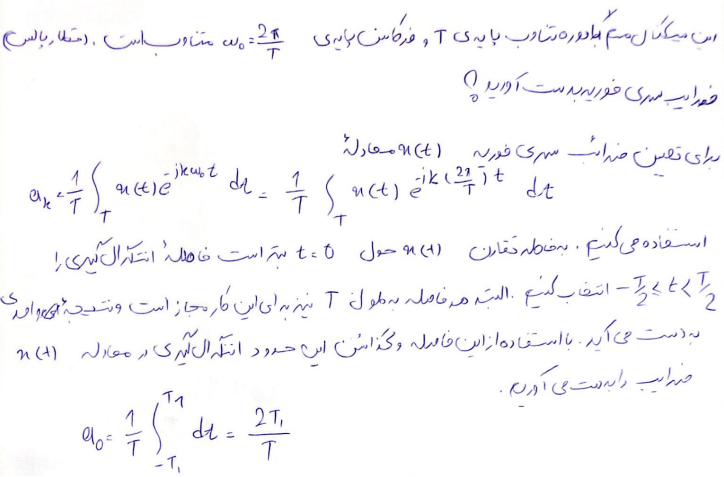 این سیگنال متناوب با دوره تناوب پایه‌ی T و فرکانس پایه‌ی ω₀=2π/T متناوب است. (قطار پالس)
ضرایب سری فوریه بدست آورید؟
برای تعیین ضرائب سری فوریه x(t) معادلهٔ
aₖ = 1/T ∫_T x(t) e^{-jkω₀t} dt = 1/T ∫_T x(t) e^{-jk(2π/T)t} dt
استفاده می کنیم. به خاطر تقارن x(t) حول t=0 بهتر است فاصلهٔ انتگرال گیری را
-T/2 ≤ t < T/2 انتخاب کنیم. البته هر فاصله به طول T نیز برای این کار مجاز است و نتیجهٔ واحدی
به دست می آید. با استفاده از این فاصله و گذاشتن این حدود انتگرال گیری در معادله x(t)
ضرایب را بدست می آوریم.
a₀ = 1/T ∫_{-T₁}^{T₁} dt = 2T₁/T